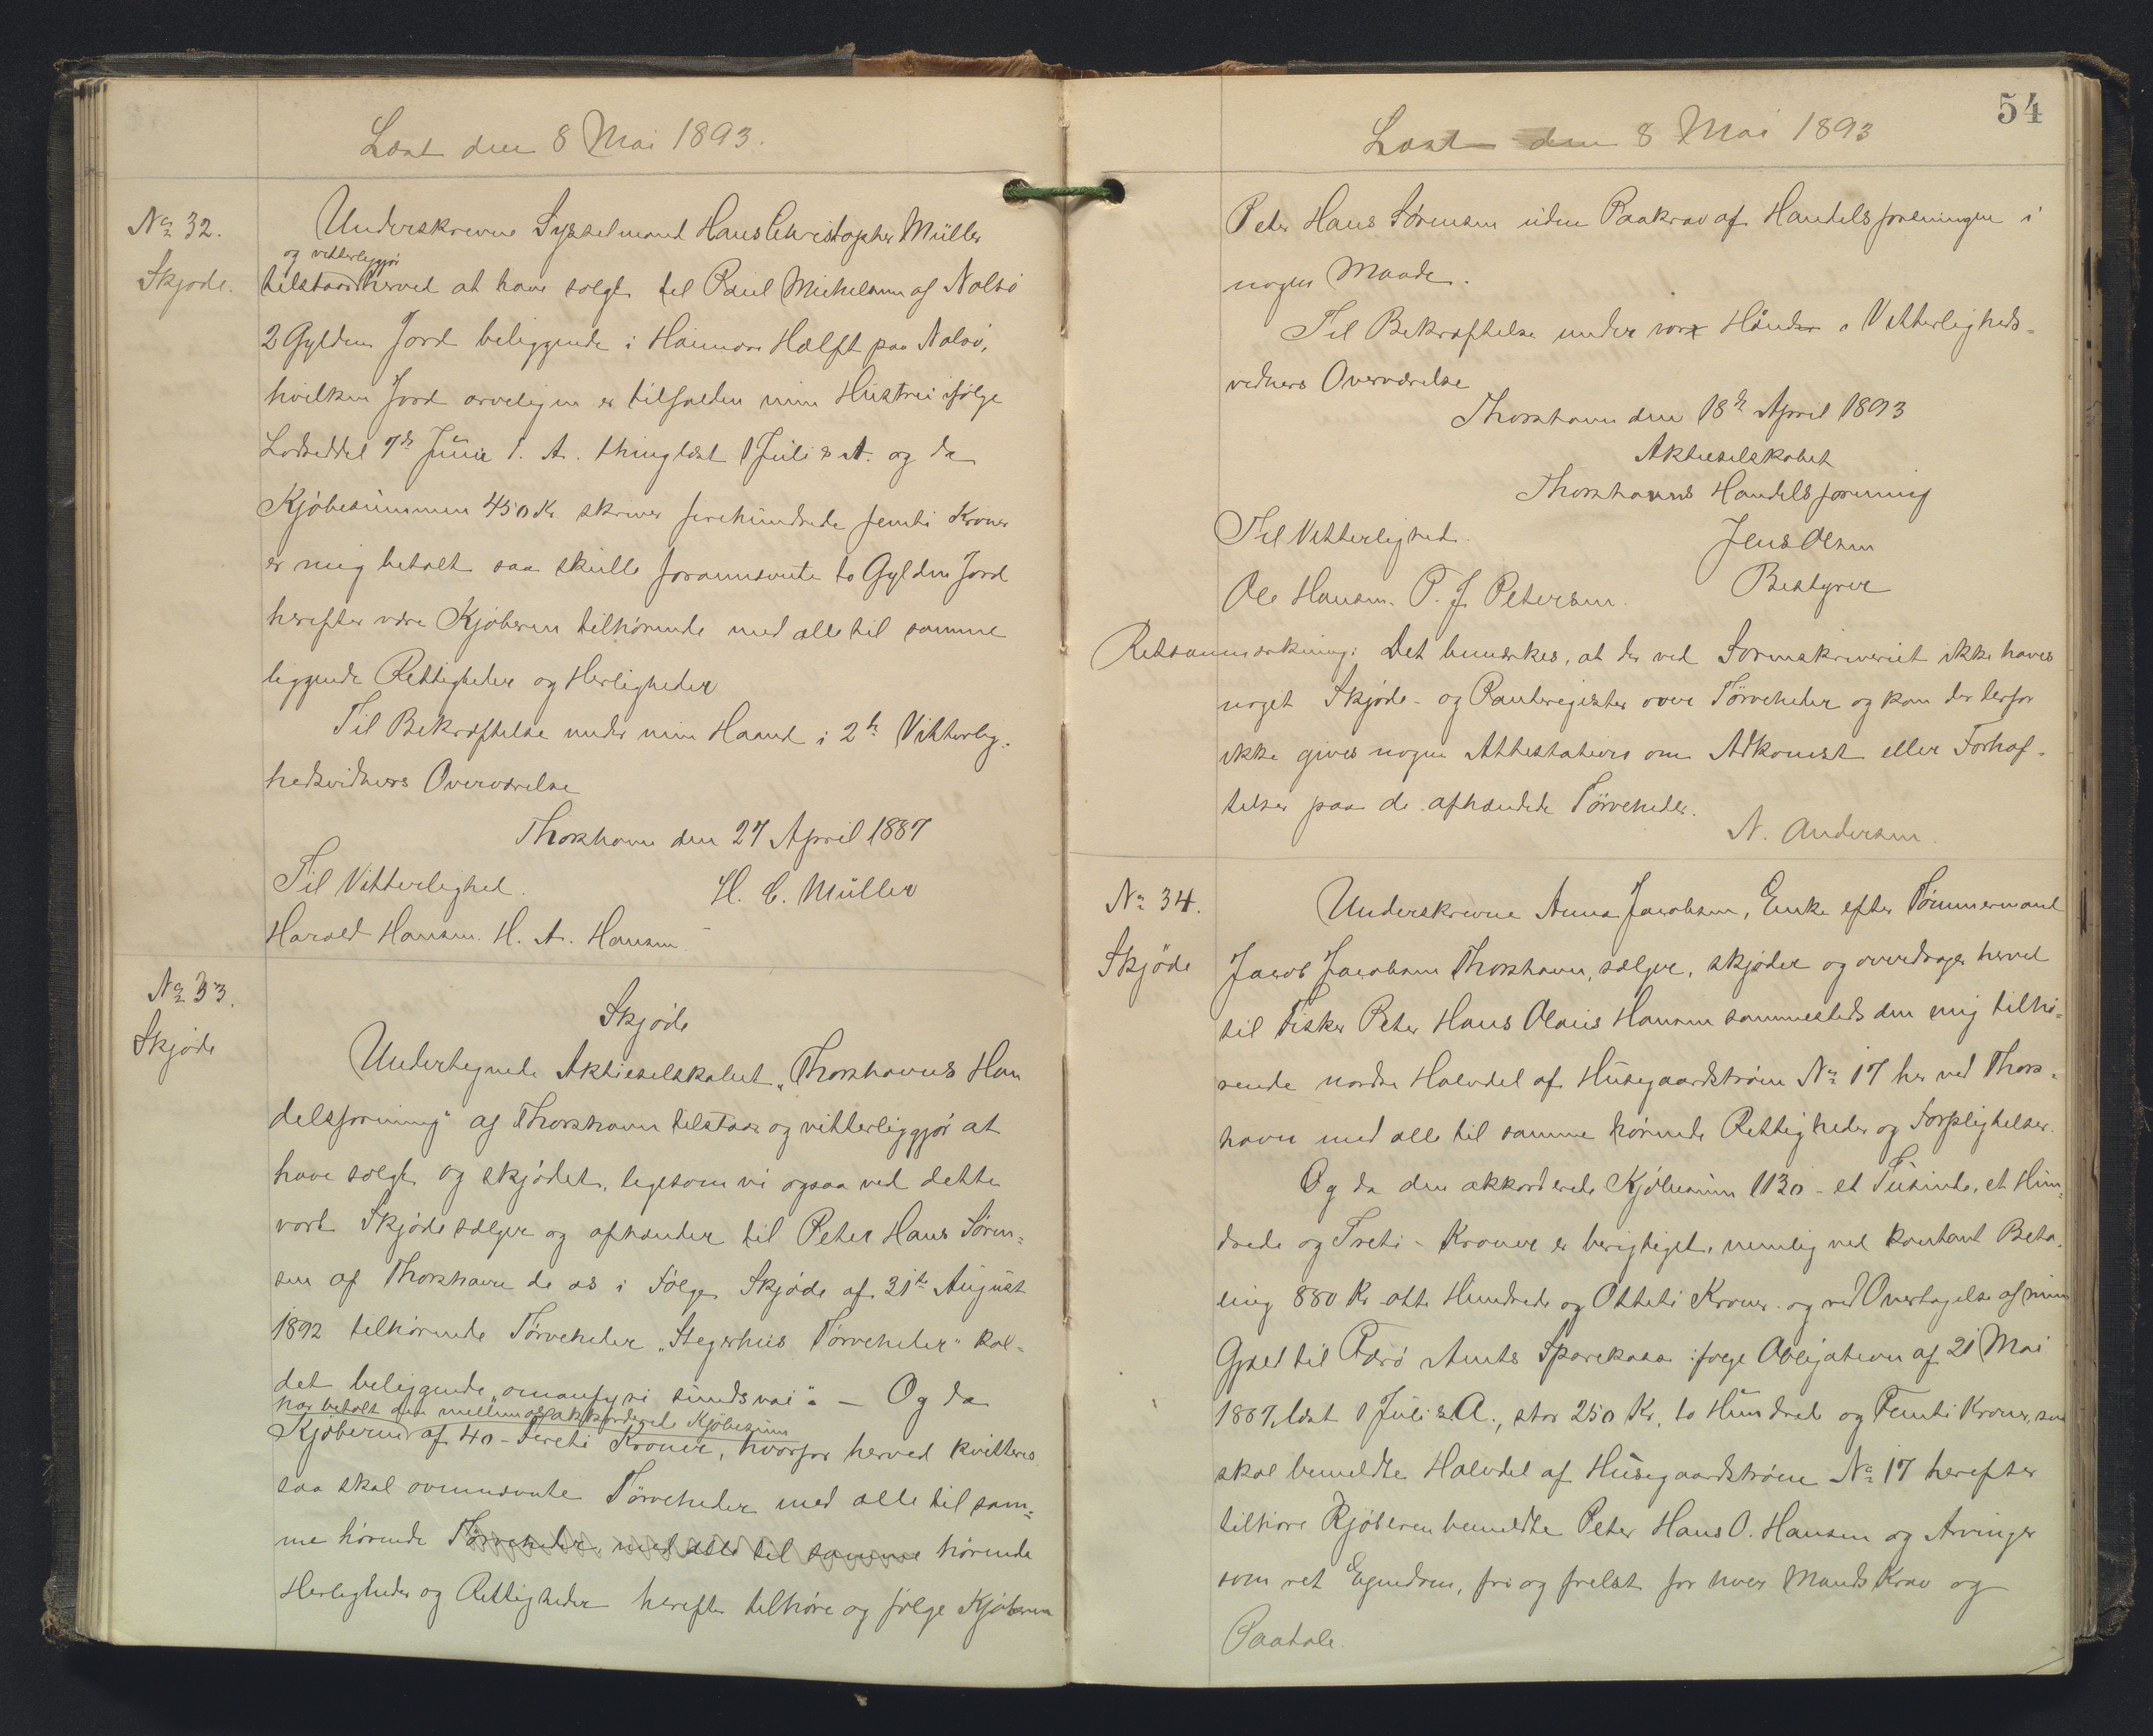 Læst den 8 Mai 1893.
No 32.
Skjøde.
Underskrevne Sysselmand Hans Christopher Müller
og vitterliggjør
tilstaar herved at have solgt til Poul Michelsen af Nolsø
2 Gylden Jord beliggende i Heimara Hælft paa Nolsø,
hvilken Jord arveligen er tilfalden min Hustru ifølge
Lodseddel 7de Juni f. A. thinglæst 1 Juli s. A. og da
Kjøbesummen 450 Kr. skriver firehundrede femti Kroner
er mig betalt saa skulle forannævnte to Gylden Jord
herefter være Kjøberen tilhørende med alle til samme
liggende Rettigheder og Herligheder
Til Bekræftelse under min Haand i 2de Vitterlig-
hedsvidners Overværelse
Thorshavn den 27 April 1887
Til Vitterlighed.
H. C. Müller
Harald Hansen. H. A. Hansen.
No 33.
Skjøde
Skjøde
Undertegnede Aktieselskabet „Thorshavns Han
delsforening“ af Thorshavn tilstaar og vitterliggjør at
have solgt og skjødet, ligesom vi ogsaa ved dette
vort Skjøde sælger og afhænder til Peter Hans Søren-
sen af Thorshavn de os i Følge Skjøde af 31te August
1892 tilhørende Tørveheder „Stegerhus Tørveheder“ kal-
det beliggende „omanfyri sundsvai“. — Og da
har betalt den mellem os akkorderede Kjøbesum
Kjøberen af 40 - Fireti Kroner, hvorfor herved kvitteres
saa skal ovennævnte Tørveheder med alle til sam-
me hørende Tørveheder med alle til samme hørende
Herligheder og Rettigheder herefter tilhøre og følge Kjøberen
54
Læst den 8 Mai 1893
Peter Hans Sørensen uden Paakrav af Handelsforeningen i
nogen Maade.
Til Bekræftelse under vor Hånd i Vitterligheds-
vidners Overværelse
Thorshavn den 18de April 1893
Aktieselskabet
Thorshavns Handelsforening
Til Vitterlighed.
Jens Olsen
Ole Hansen. P. J. Petersen.
Bestyrer
Retsanmærkning: Det bemærkes, at der ved Sorenskriveriet ikke haves
noget Skjøde- og Panteregister over Tørveheder og kan der derfor
ikke gives nogen Attestation om Adkomst eller Forhæf-
telser paa de afhændede Tørveheder.
N. Andersen.
No 34.
Skjøde
Underskrevne Anna Jacobsen, Enke efter Tømmermand
Jacob Jacobsen Thorshavn, sælger, skjøder og overdrager herved
til Fisker Peter Hans Olaus Hansen sammesteds den mig tilhø-
rende nordre Halvdel af Husegaardstrøen No 17 her ved Thors-
havn med alle til samme hørende Rettigheder og Forpligtelser.
Og da den akkorderede Kjøbesum 1130 - et Tusinde, et Hun-
drede og Treti - Kroner er berigtiget, nemlig ved kontant Beta-
ling 880 Kr otte Hundrede og Otteti Kroner og ved Overtagelse af min
Gjæld til Færø Amts Sparekasse ifølge Obligation af 21 Mai
1887, læst 1 Juli s. A., stor 250 Kr, to Hundrede og Femti Kroner, saa
skal bemeldte Halvdel af Husegaardstrøen No 17 herefter
tilhøre Kjøberen bemeldte Peter Hans O. Hansen og Arvinger
som ret Eyendom, fri og frelst for hver Mands Krav og
Paatale.